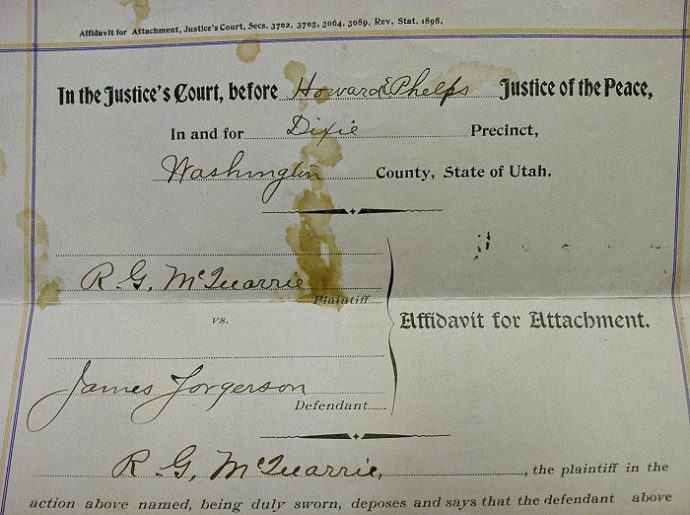 Affidavit for Attachment, Justice's Court, Secs. 3702, 3705, 3064, 3089, Rev. Stat, 1898.
In the Justice's Court, before Howard E Phelps Justice of the Peace,
In and for Dixie Precinct,
Washington County, State of Utah.
R. G. McQuarrie
Plaintiff
vs.
Affidavit for Attachment.
James Jorgerson
Defendant
R. G. McQuarrie, , the plaintiff in the
action above named, being duly sworn, deposes and says that the defendant above